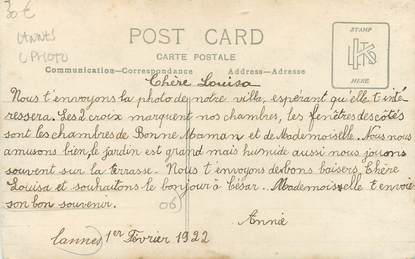 30 €
CANNES
C PHOTO
POST CARD
CARTE POSTALE
Communication—Correspondance Address—Adresse
STAMP
HERE
Chère Louisa
Nous t'envoyons la photo de notre villa, espérant qu'elle t'inté
ressera. Les 2 croix marquent nos chambres, les fenêtres des côtés
sont les chambres de Bonne Maman et de Mademoiselle. Nous nous
amusons bien, le jardin est grand mais humide aussi nous jouons
souvent sur la terrasse. Nous t'envoyons de bons baisers Chère
Louisa et souhaitons le bonjour à César. Mademoiselle t'envoie
son bon souvenir.
06
Annie
Cannes 1er Février 1922